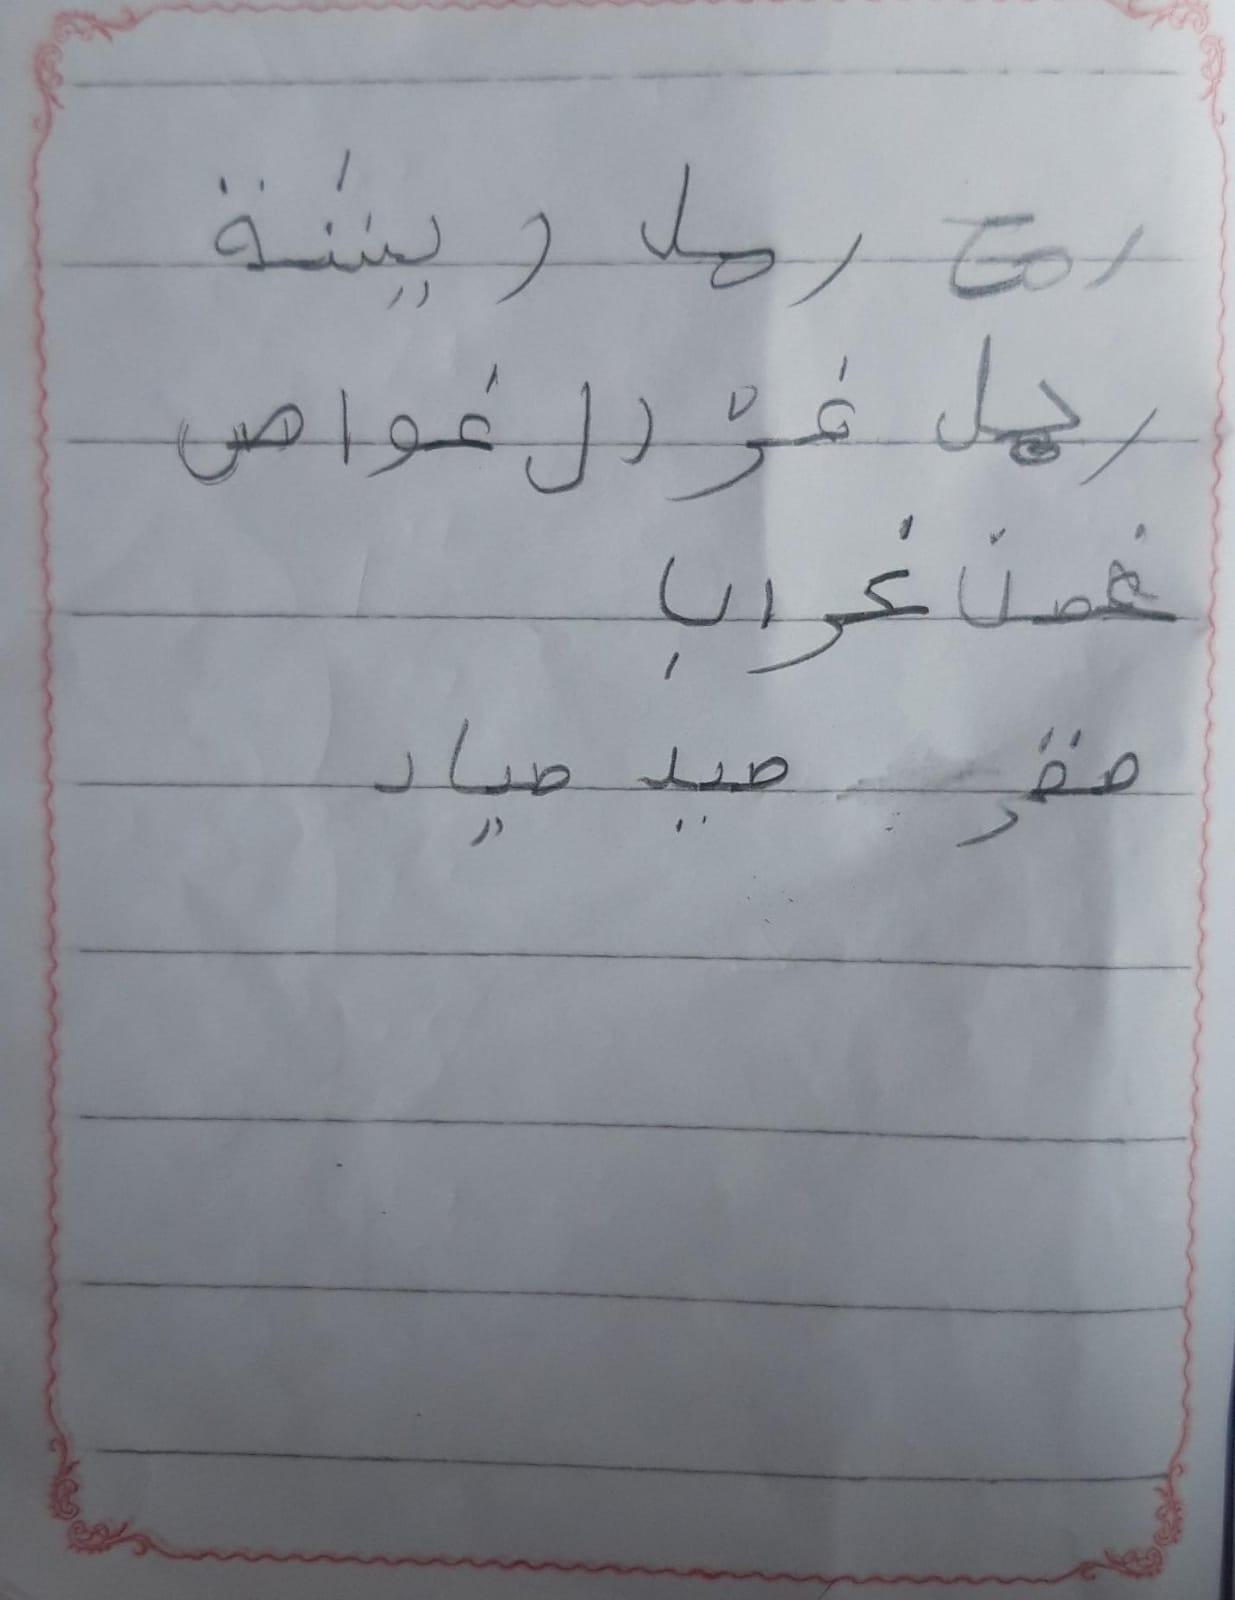 رمح رمل ريشة
رجل غزال غواص
غصن غراب
صقر صيد صياد